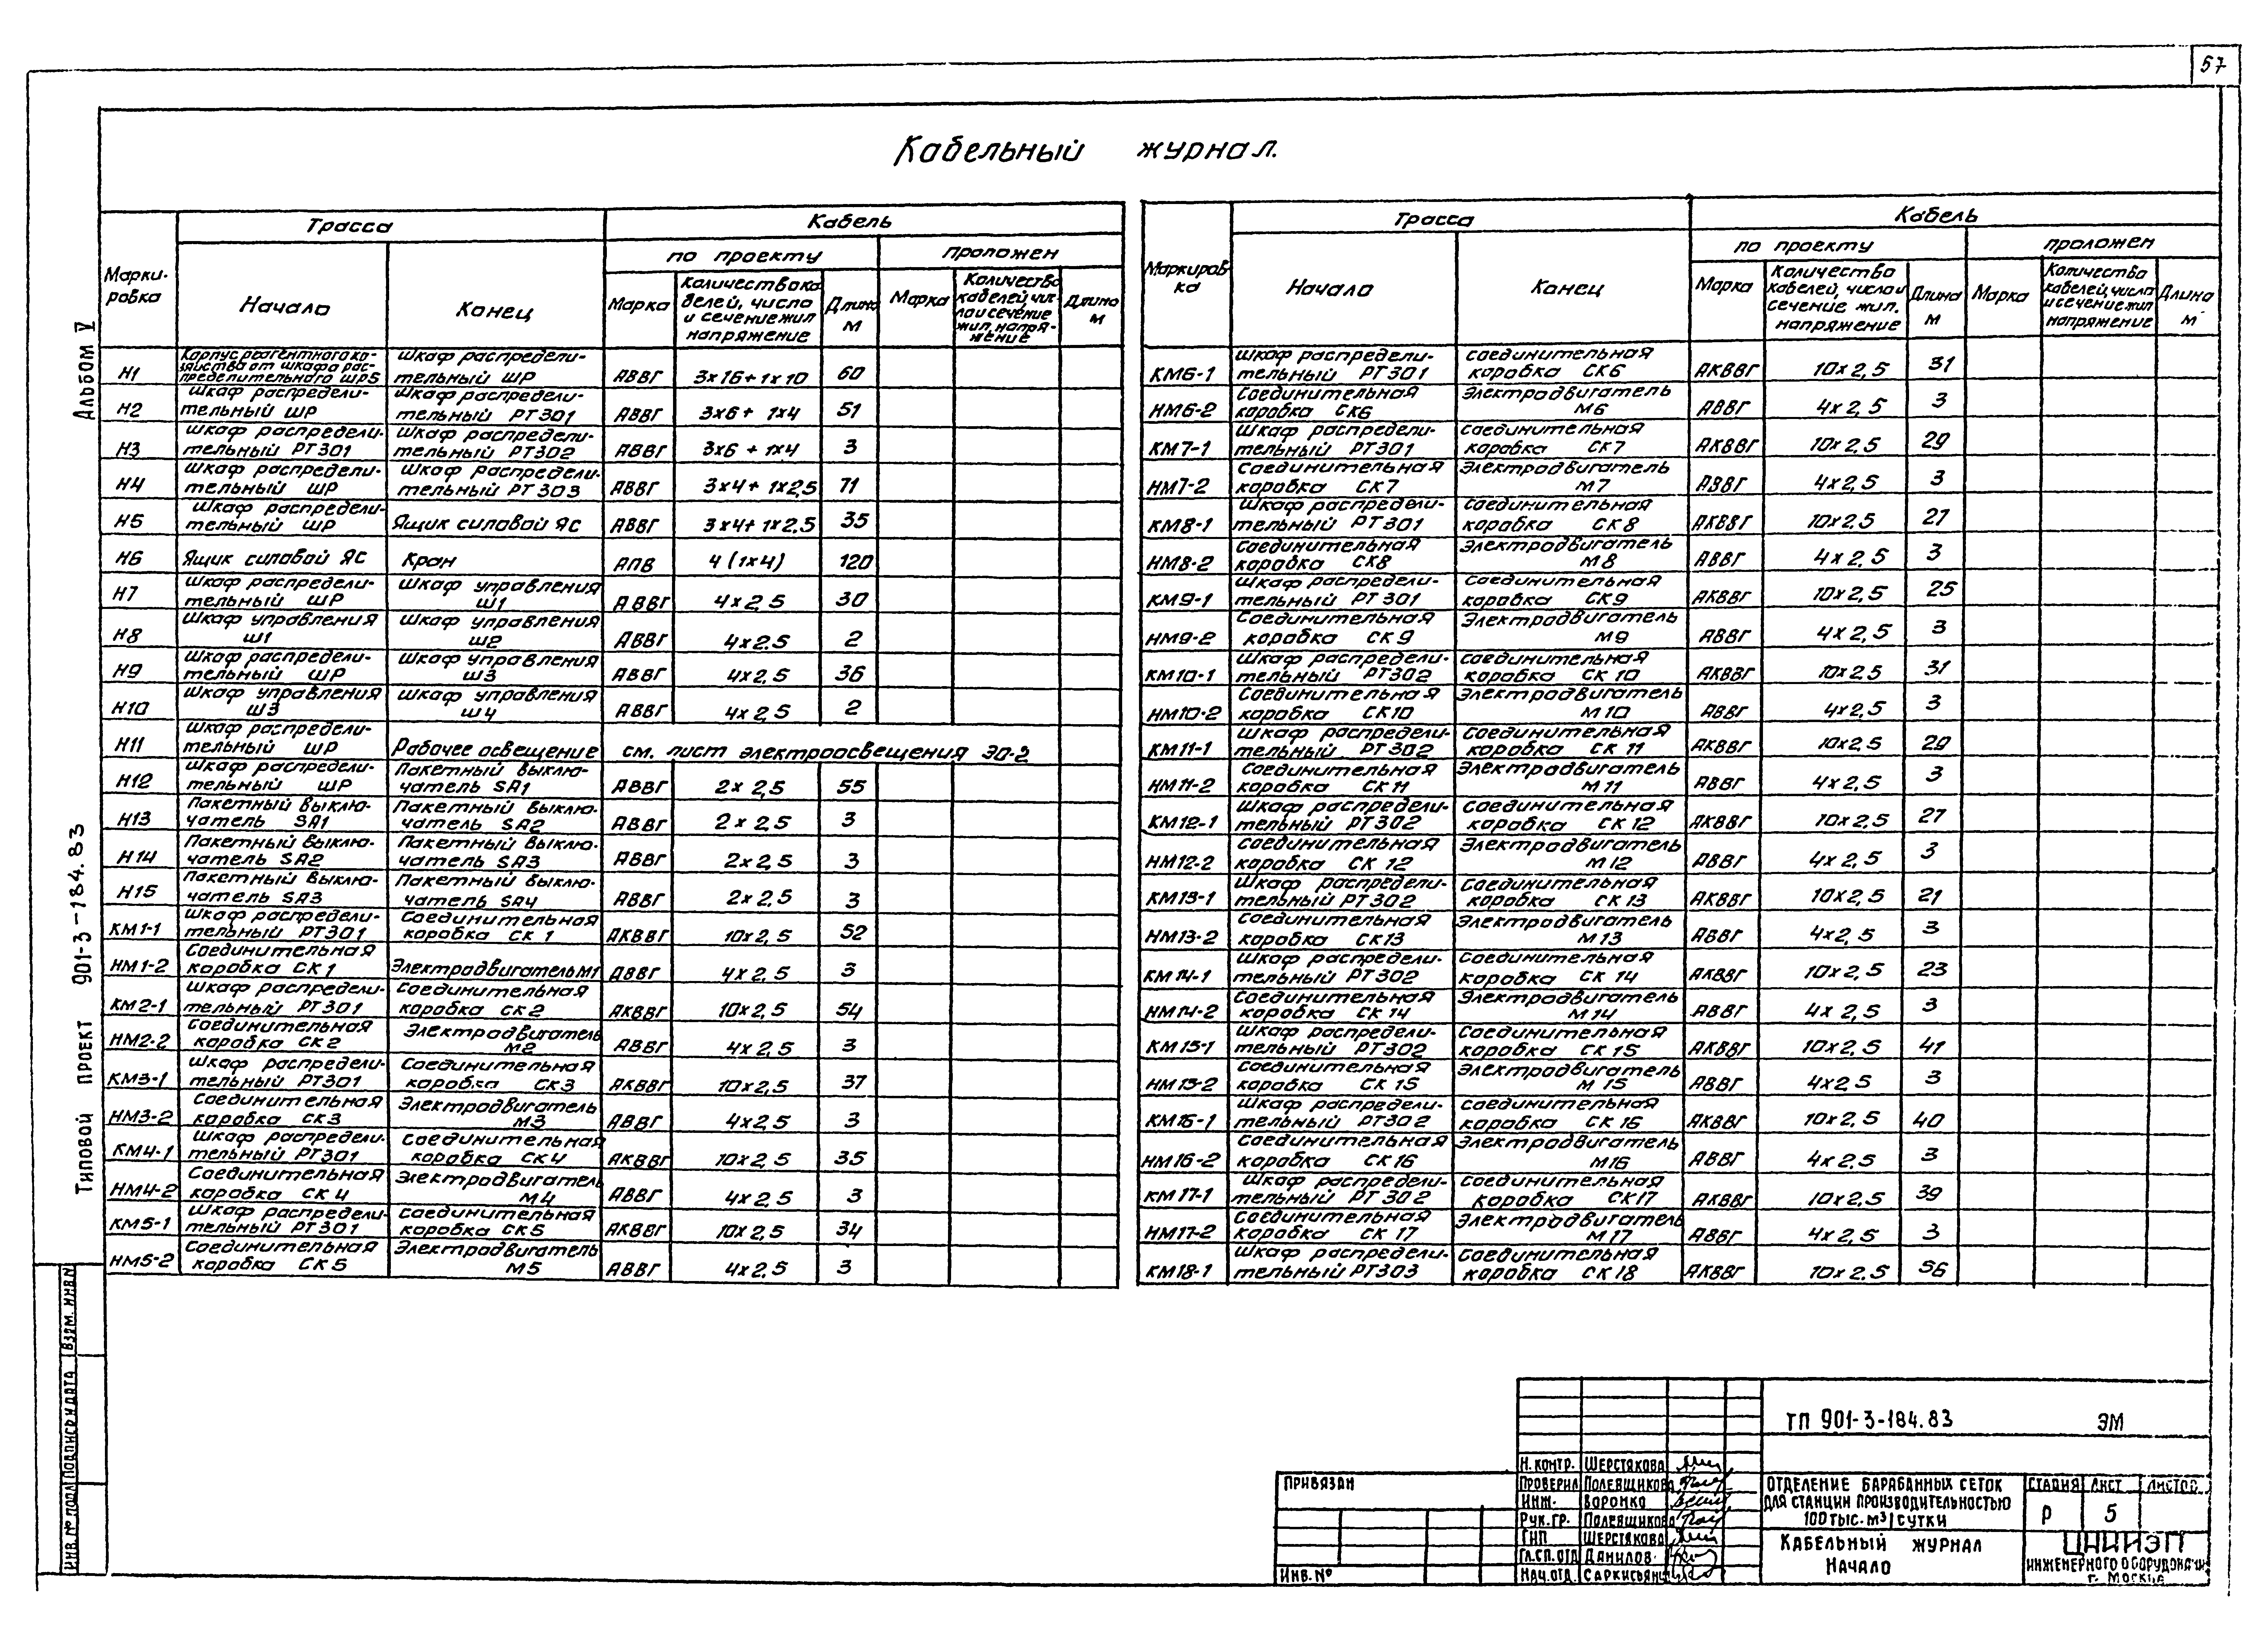 57
Кабельный журнал.
Альбом V
Типовой проект 901-3-184.83
Марки-
ровка
Трасса
Кабель
Начало
Конец
по проекту
проложен
Марка
Количество ка
белей, число
и сечение жил
напряжение
Длина
м
Марка
Количество
кабелей, чис-
ло и сечение
жил, напря-
жение
Длина
м
Н1 Корпус реагентного хо- Шкаф распредели-
зяйства от шкафа рас- тельный ШР АВВГ 3х16+1х10 60
пределительного ШР5
Н2 Шкаф распредели- Шкаф распредели-
тельный ШР тельный РТ301 АВВГ 3х6+ 1х4 51
Н3 Шкаф распредели- Шкаф распредели-
тельный РТ301 тельный РТ302 АВВГ 3х6 + 1х4 3
Н4 Шкаф распредели- Шкаф распредели-
тельный ШР тельный РТ303 АВВГ 3х4+ 1х2,5 71
Н5 Шкаф распредели-
тельный ШР Ящик силовой ЯС АВВГ 3х4+1х2.5 35
Н6 Ящик силовой ЯС Кран АПВ 4 (1х4) 120
Н7 Шкаф распредели- Шкаф управления
тельный ШР Ш1 АВВГ 4х2,5 30
Н8 Шкаф управления Шкаф управления
Ш1 Ш2 АВВГ 4х2.5 2
Н9 Шкаф распредели- Шкаф управления
тельный ШР Ш3 АВВГ 4х2,5 36
Н10 Шкаф управления Шкаф управления
Ш3 Ш4 АВВГ 4х2,5 2
Н11 Шкаф распредели-
тельный ШР Рабочее освещение см. лист электроосвещения ЭО-2
Н12 Шкаф распредели- Пакетный выклю-
тельный ШР чатель SA1 АВВГ 2х 2,5 55
Н13 Пакетный выклю- Пакетный выклю-
чатель SA1 чатель SA2 АВВГ 2х 2,5 3
Н14 Пакетный выклю- Пакетный выклю-
чатель SA2 чатель SA3 АВВГ 2х2,5 3
Н15 Пакетный выклю- Пакетный выклю-
чатель SA3 чатель SA4 АВВГ 2х2,5 3
КМ1-1 Шкаф распредели- Соединительная
тельный РТ301 коробка СК 1 АКВВГ 10х2,5 52
НМ1-2 Соединительная
коробка СК1 Электродвигатель М1 АВВГ 4х2.5 3
КМ2-1 Шкаф распредели- Соединительная
тельный РТ301 коробка СК2 АКВВГ 10х2,5 54
НМ2-2 Соединительная Электродвигатель
коробка СК2 М2 АВВГ 4х2,5 3
КМ3-1 Шкаф распредели- Соединительная
тельный РТ301 коробка СК3 АКВВГ 10х2,5 37
НМ3-2 Соединительная Электродвигатель
коробка СК3 М3 АВВГ 4х2,5 3
КМ4-1 Шкаф распредели- Соединительная
тельный РТ301 коробка СК4 АКВВГ 10х2,5 35
НМ4-2 Соединительная Электродвигатель
коробка СК4 М4 АВВГ 4х2,5 3
КМ5-1 Шкаф распредели- Соединительная
тельный РТ301 коробка СК5 АКВВГ 10х2.5 34
НМ5-2 Соединительная Электродвигатель
коробка СК5 М5 АВВГ 4х2.5 3
Маркиров
ка
Трасса
Кабель
Начало
Конец
по проекту
проложен
Марка
Количество
кабелей, число и
сечение жил,
напряжение
Длина
м
Марка
Количество
кабелей, число
и сечение жил
напряжение
Длина
м
КМ6-1 Шкаф распредели- Соединительная
тельный РТ301 коробка СК6 АКВВГ 10х2,5 31
НМ6-2 Соединительная Электродвигатель
коробка СК6 М6 АВВГ 4х2,5 3
КМ7-1 Шкаф распредели- Соединительная
тельный РТ301 коробка СК7 АКВВГ 10х2,5 29
НМ7-2 Соединительная Электродвигатель
коробка СК7 М7 АВВГ 4х2,5 3
КМ8-1 Шкаф распредели- Соединительная
тельный РТ301 коробка СК8 АКВВГ 10х2,5 27
НМ8-2 Соединительная Электродвигатель
коробка СК8 М8 АВВГ 4х2,5 3
КМ9-1 Шкаф распредели- Соединительная
тельный РТ301 коробка СК9 АКВВГ 10х2,5 25
НМ9-2 Соединительная Электродвигатель
коробка СК9 М9 АВВГ 4х2,5 3
КМ10-1 Шкаф распредели- Соединительная
тельный РТ302 коробка СК 10 АКВВГ 10х2,5 31
НМ10-2 Соединительная Электродвигатель
коробка СК10 М10 АВВГ 4х2,5 3
КМ11-1 Шкаф распредели- Соединительная
тельный РТ302 коробка СК 11 АКВВГ 10х2.5 29
НМ11-2 Соединительная Электродвигатель
коробка СК11 М11 АВВГ 4х2,5 3
КМ12-1 Шкаф распредели- Соединительная
тельный РТ302 коробка СК 12 АКВВГ 10х2,5 27
НМ12-2 Соединительная Электродвигатель
коробка СК 12 М12 АВВГ 4х2,5 3
КМ13-1 Шкаф распредели- Соединительная
тельный РТ302 коробка СК13 АКВВГ 10х2,5 21
НМ13-2 Соединительная Электродвигатель
коробка СК13 М13 АВВГ 4х2,5 3
КМ14-1 Шкаф распредели- Соединительная
тельный РТ302 коробка СК 14 АКВВГ 10х2,5 23
НМ14-2 Соединительная Электродвигатель
коробка СК 14 М14 АВВГ 4х 2,5 3
КМ15-1 Шкаф распредели- Соединительная
тельный РТ302 коробка СК15 АКВВГ 10х2,5 41
НМ15-2 Соединительная Электродвигатель
коробка СК 15 М 15 АВВГ 4х2,5 3
КМ16-1 Шкаф распредели- Соединительная
тельный РТ302 коробка СК 16 АКВВГ 10х2,5 40
НМ16-2 Соединительная Электродвигатель
коробка СК16 М16 АВВГ 4х2.5 3
КМ17-1 Шкаф распредели- Соединительная
тельный РТ 302 коробка СК17 АКВВГ 10х2.5 39
НМ17-2 Соединительная Электродвигатель
коробка СК 17 М17 АВВГ 4х2,5 3
КМ18-1 Шкаф распредели- Соединительная
тельный РТ303 коробка СК18 АКВВГ 10х2.5 56
Взам. инв. N
Подпись и дата
Инв. № подл
Привязан
Инв. №
ТП 901-3-184.83 ЭМ
Н. контр. Шерстякова
Проверил Полевщикова
Инж. Воронко
Рук. гр. Полевщикова
ГИП Шерстякова
Гл. сп. отд Данилов
Нач. отд. Саркисьянц
Отделение барабанных сеток
для станции производительностью
100 тыс. м³/сутки
Кабельный журнал
Начало
Стадия Лист Листов
Р 5
ЦНИИЭП
инженерного оборудования
г. Москва